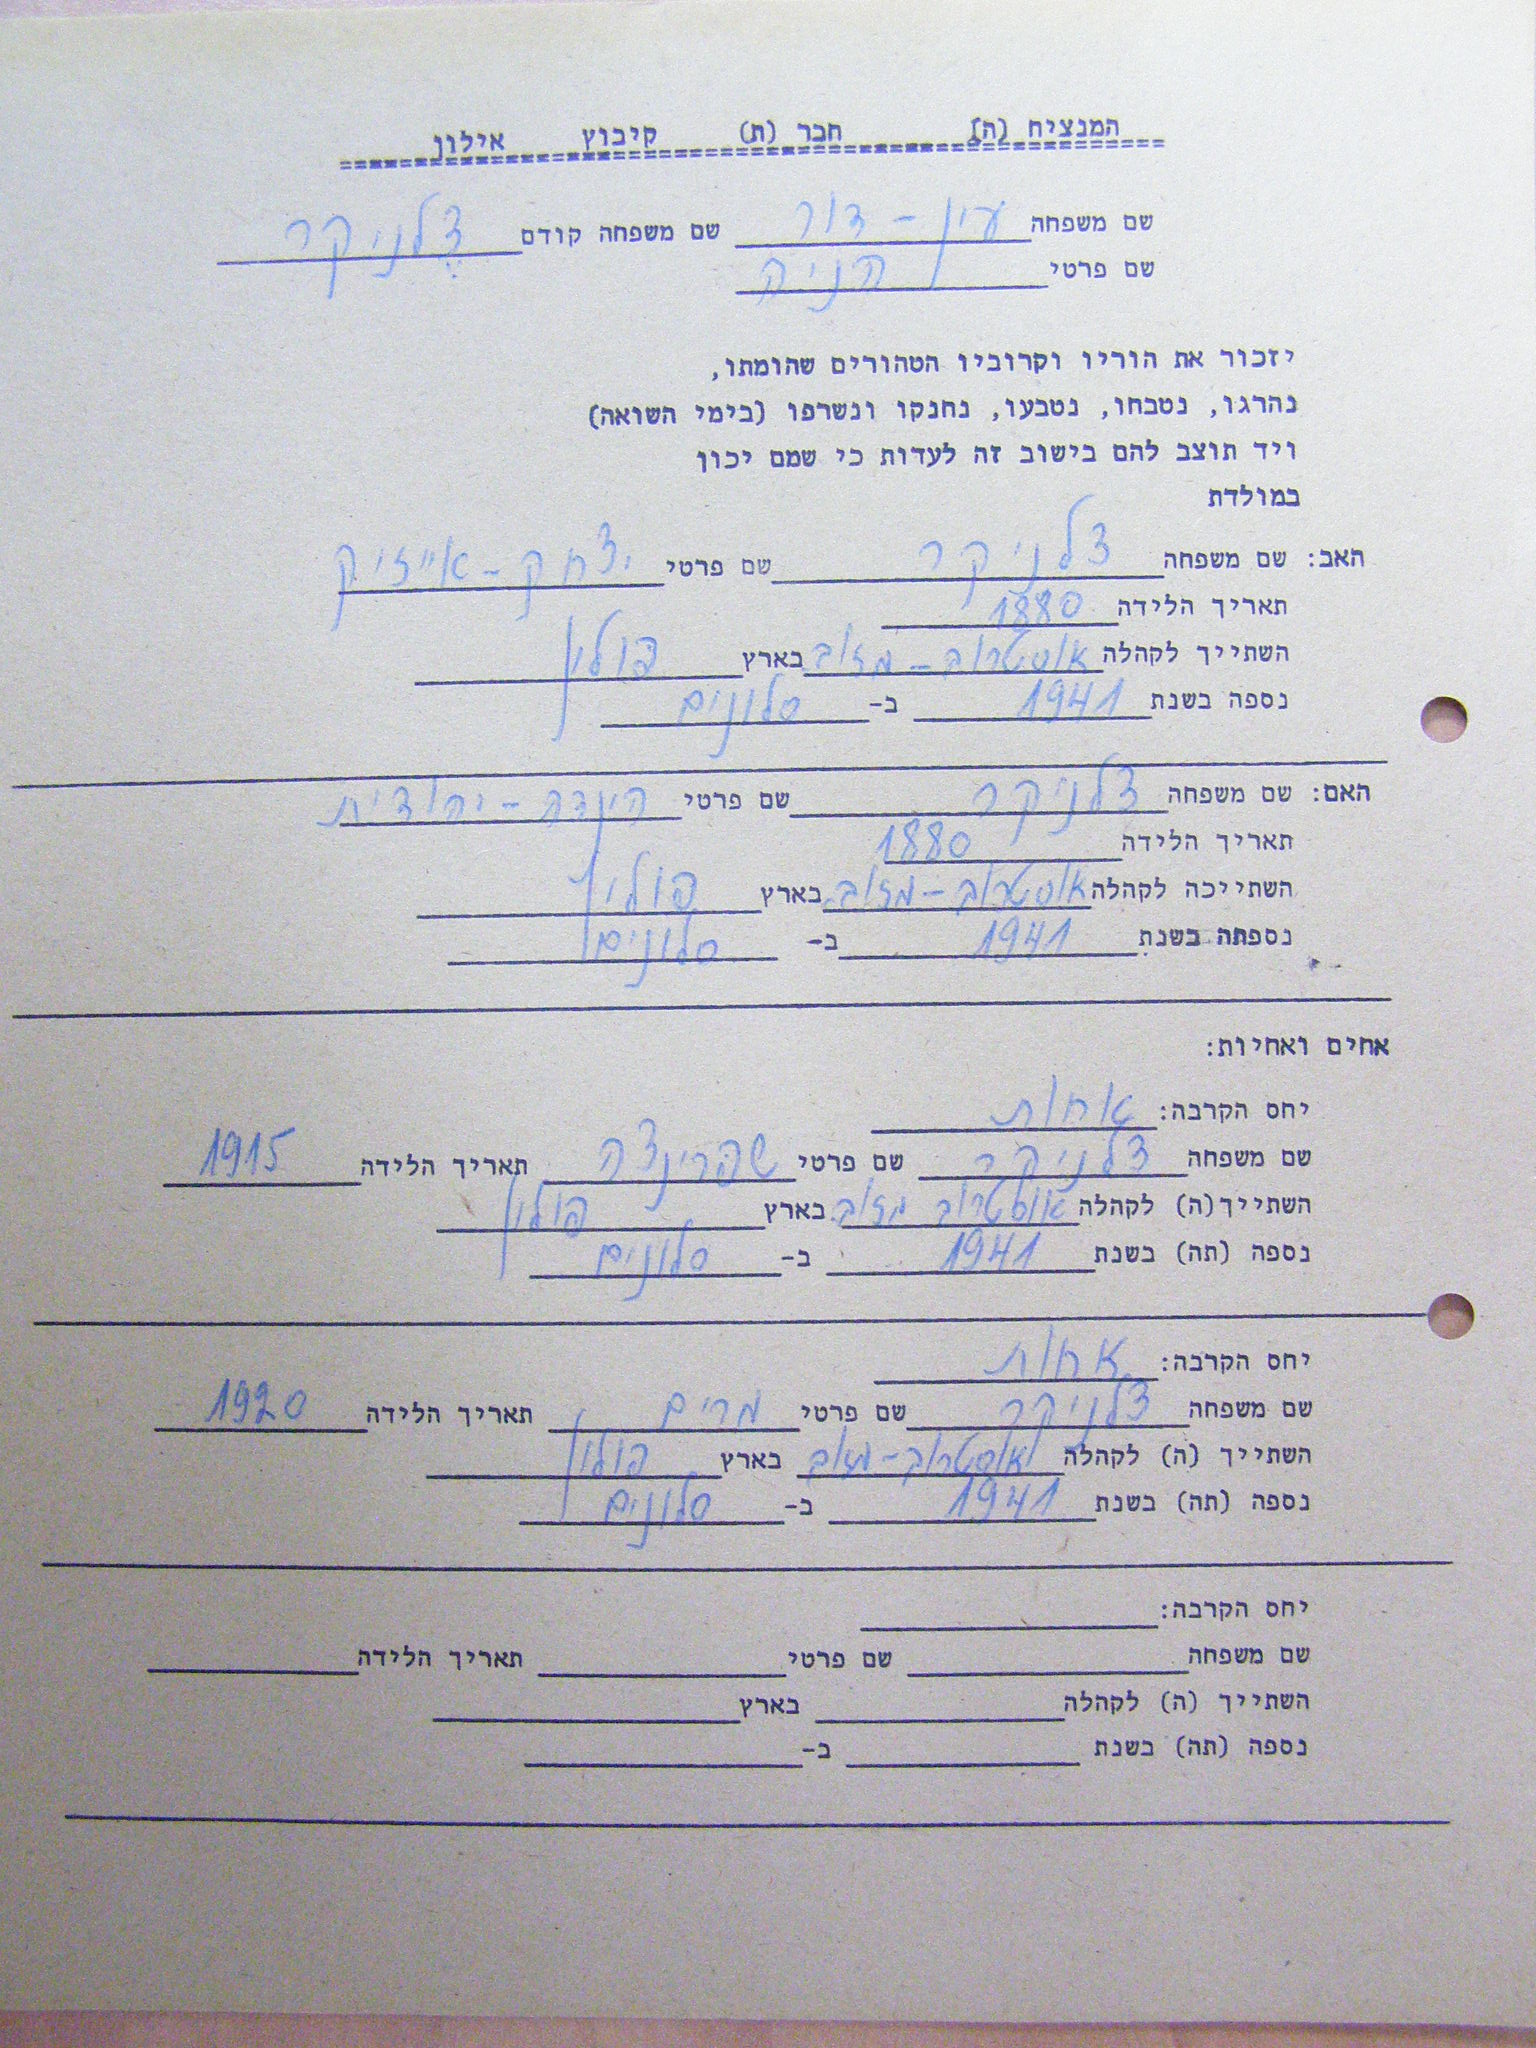 המנציח (ה) חבר (ת) קיבוץ אילון
שם משפחה עין - דור שם משפחה קודם צלניקר
שם פרטי הניה
יזכור את הוריו וקרוביו הטהורים שהומתו,
נהרגו, נטבחו, נטבעו, נחנקו ונשרפו (בימי השואה)
ויד תוצב להם בישוב זה לעדות כי שמם יכון
במולדת
האב: שם משפחה צלניקר שם פרטי יצחק - אייזיק
תאריך הלידה 1880
השתייך לקהלה אוסטרוב - מזוב. בארץ פולין
נספה בשנת 1941 ב- סלונים
האם: שם משפחה צלניקר שם פרטי הינדה - יהודית
תאריך הלידה 1880
השתייכה לקהלה אוסטרוב - מזוב. בארץ פולין
נספתה בשנת 1941 ב- סלונים
אחים ואחיות:
יחס הקרבה: אחות
שם משפחה צלניקר שם פרטי שפרינצה תאריך הלידה 1915
השתייך(ה) לקהלה אוסטרוב מזוב. בארץ פולין
נספה (תה) בשנת 1941 ב- סלונים
יחס הקרבה: אחות
שם משפחה צלניקר שם פרטי מרים תאריך הלידה 1920
השתייך (ה) לקהלה אוסטרוב - מזוב בארץ פולין
נספה (תה) בשנת 1941 ב- סלונים
יחס הקרבה:
שם משפחה שם פרטי תאריך הלידה
השתייך (ה) לקהלה בארץ
נספה (תה) בשנת ב-